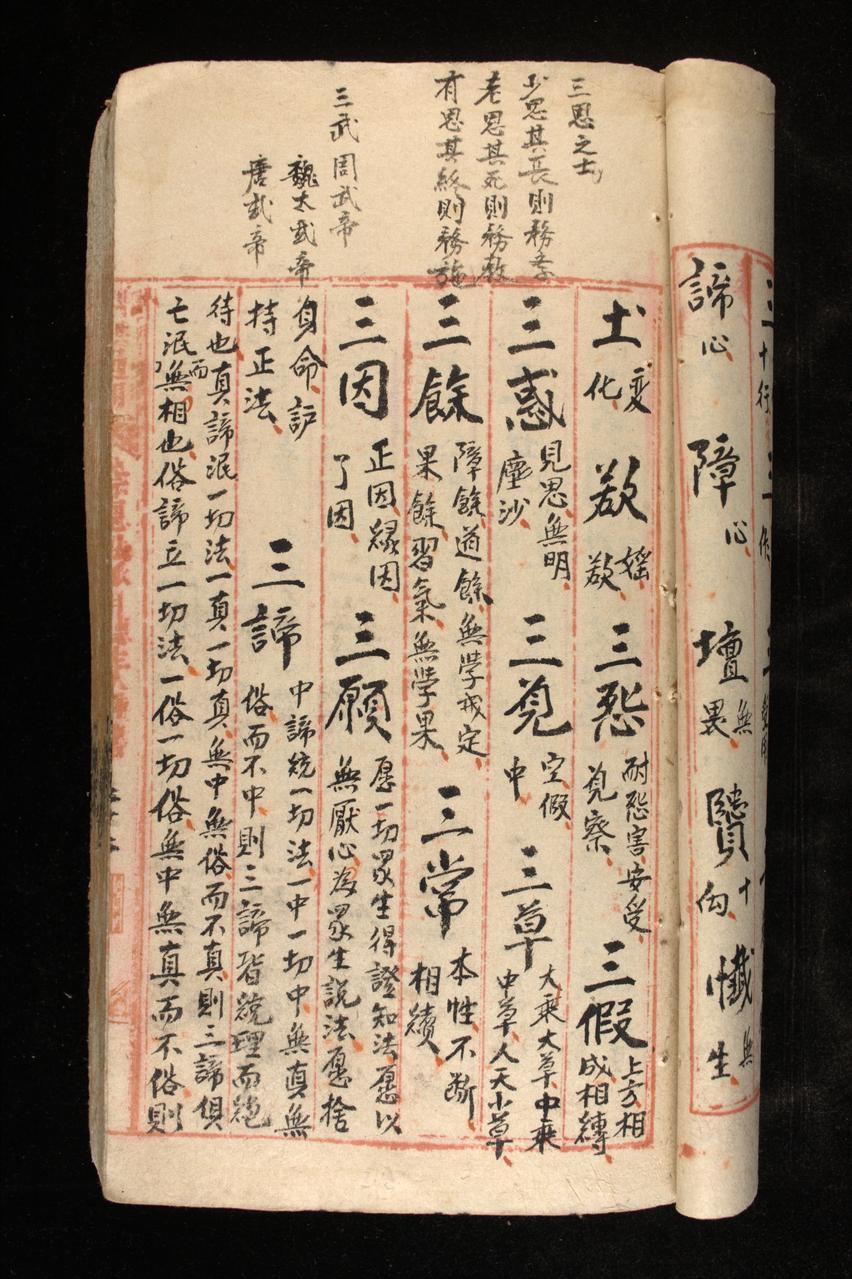 諦心
障心
壇無
畏
讚十
勾
懺無
生
三思之士
少思其長則務學
老思其死則務教
有思其終則務施
三武周武帝
魏太武帝
唐武帝
土變
化
三忍耐怨害安受
三假上方相
成相縛
三惑見思無明
塵沙
三覓空假
中
三草大乘大草中乘
中草人天小草
三餘障餘道餘無学戒定
果餘習氣無学果
三常本性不斷
相續
三因正因緣因
了因
三願愿一切眾生得證知法愿以
無厭心為眾生說法愿捨
身命护
持正法
三諦中諦統一切法一中一切中無真無
俗而不中則三諦皆統理而絕
待也真諦泯一切法一真一切真無中無俗而不真則三諦俱
亡泯而無相也俗諦立一切法一俗一切俗無中無真而不俗則